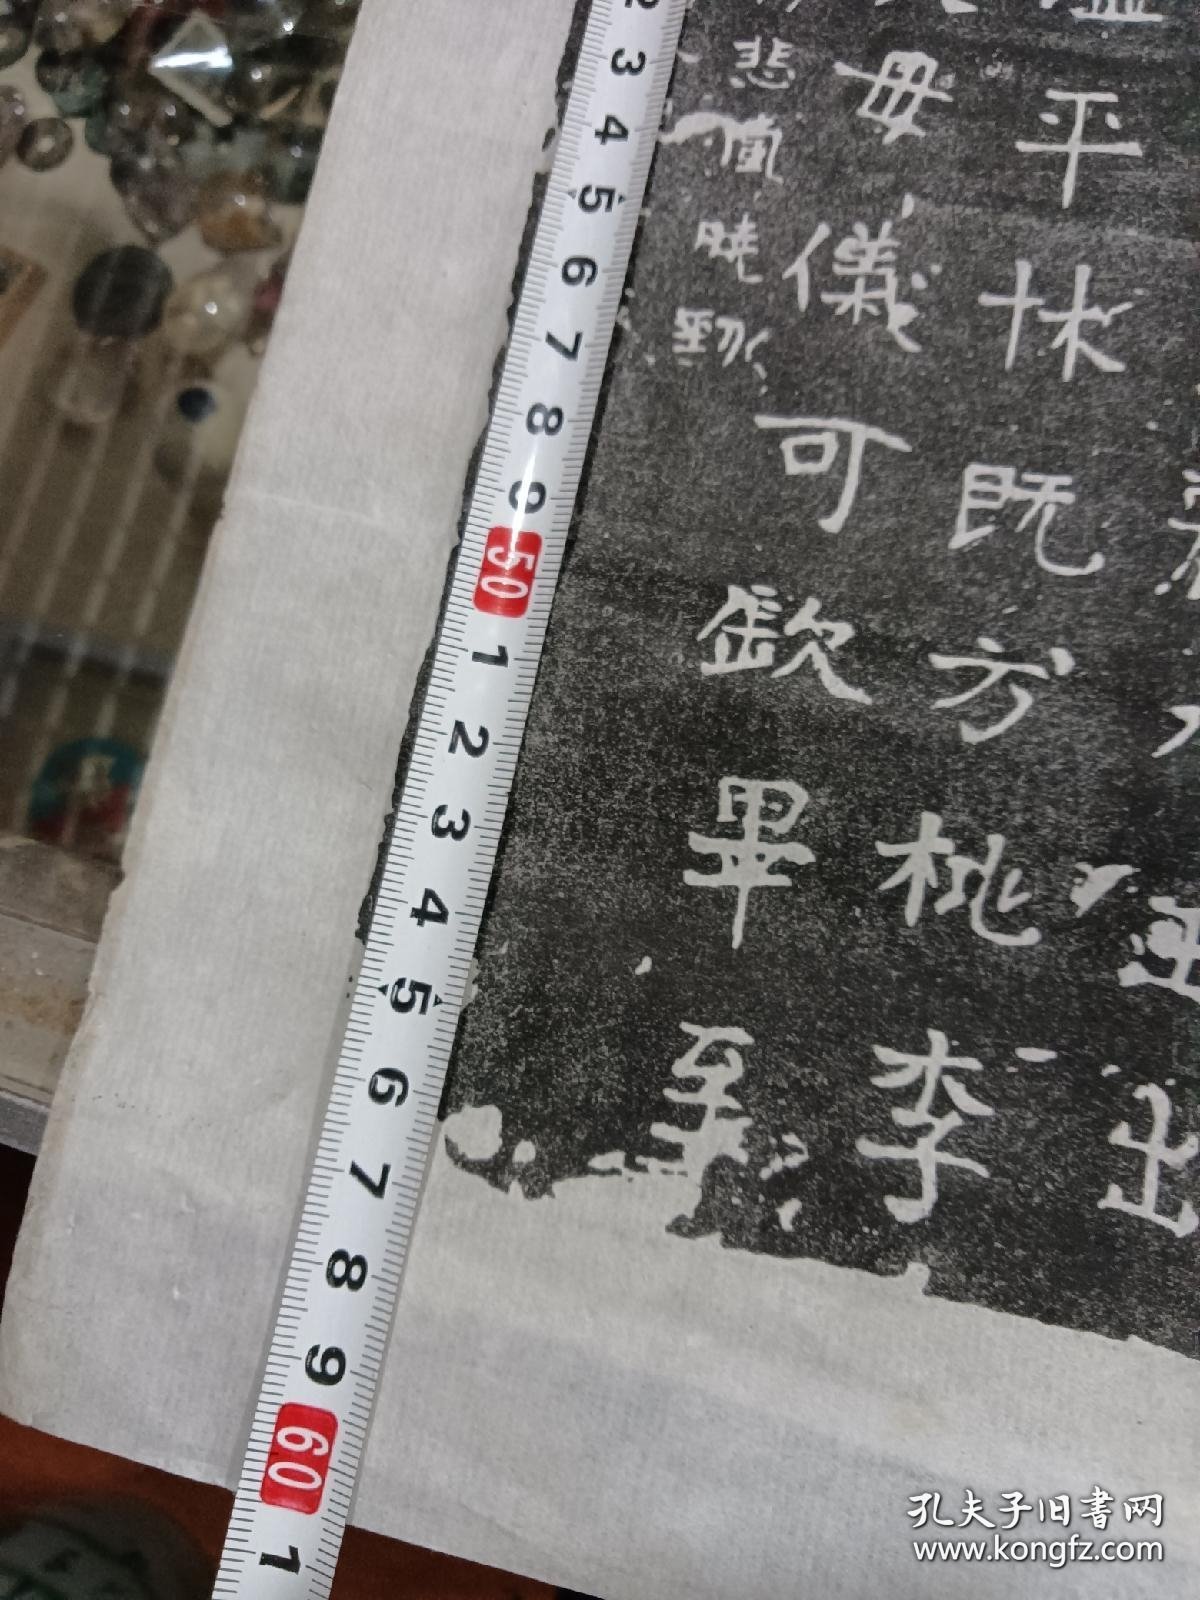 平林既方桃李
毋儀可欽畢至
悲
曉
2
3
4
5
6
7
8
9
50
1
2
3
4
5
6
7
8
9
60
1
出
孔夫子旧书网
www.kongfz.com